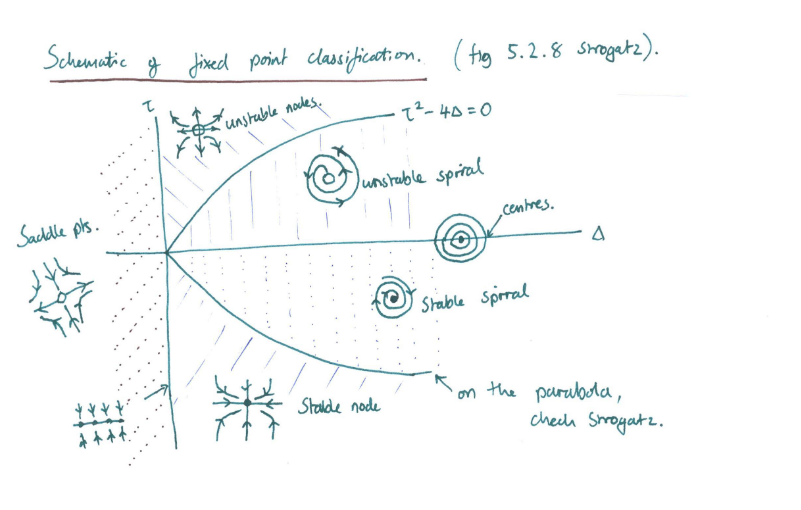 Schematic of fixed point classification. (fig 5.2.8 Strogatz).
τ
unstable nodes.
τ²-4Δ=0
unstable spiral
centres.
Saddle pts.
Δ
Stable spiral
Stable node
on the parabola,
check Strogatz.